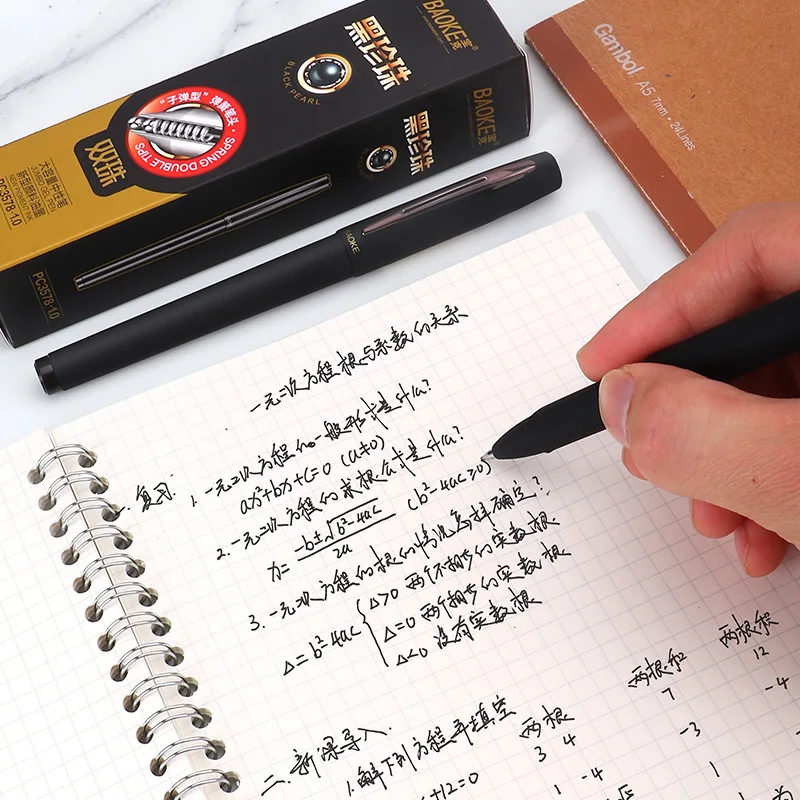 BAOKE 宝克®
黑珍珠
BLACK PEARL
"子弹型"弹簧笔头
SPRING DOUBLE TIPS
双珠
大容量中性笔
JUMBO GEL PEN
NEW PIGMENT INK
PC3578·1.0
BAOKE 宝克®
黑珍珠
PC3578·1.0
BAOKE
Gambol.
A5 7mm·24Lines
一元二次方程根与系数的关系
一、复习
1. 一元二次方程的一般形式是什么?
ax²+bx+c=0 (a≠0)
2. 一元二次方程的求根公式是什么?
x= -b±√b²-4ac / 2a (b²-4ac≥0)
3. 一元二次方程的根的情况怎样确定?
Δ=b²-4ac { Δ>0 两个不相等的实数根
Δ=0 两个相等的实数根
Δ<0 没有实数根
二、新课导入
1. 解下列方程并填空
两根 两根和 两根积
+12=0 3 4 7 12
1 -4 -3 -4
1